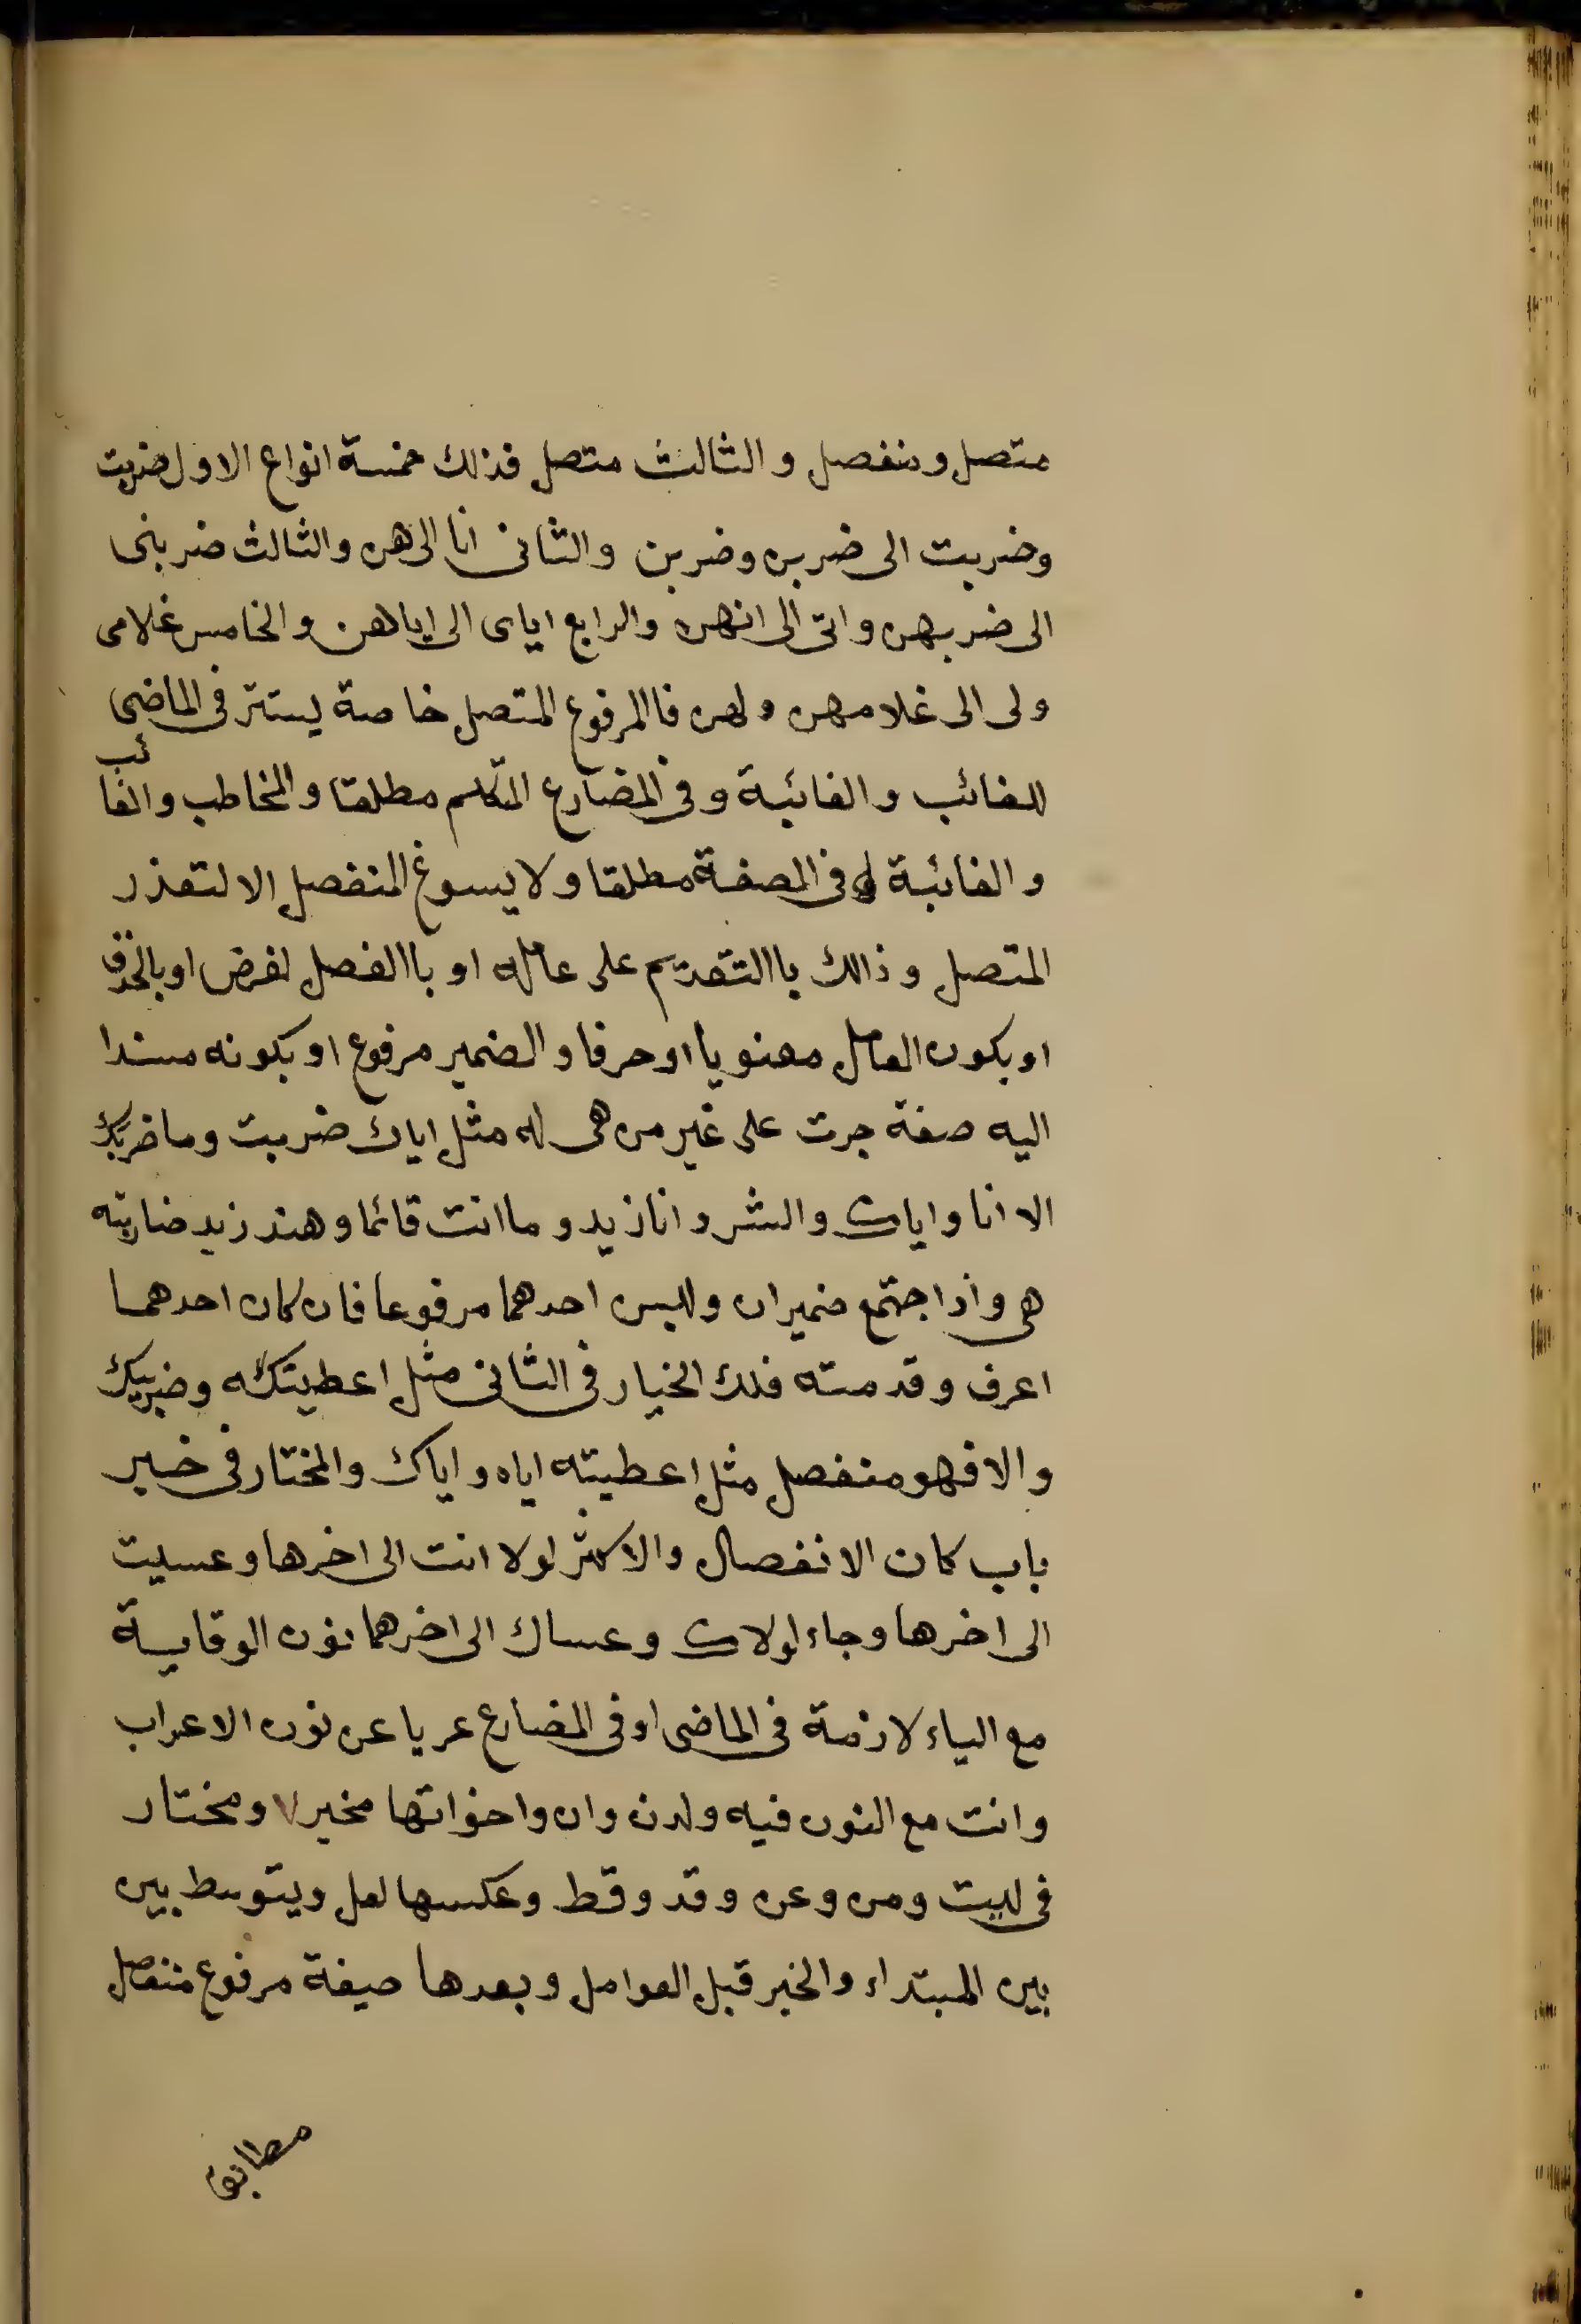 متصل ومنفصل والثالث متصل فذلك خمسة انواع الاول ضربت
وضربت الى ضربن وضربن والثانى انا الى هن والثالث ضربنى
الى ضربهن وانى الى انهن والرابع اياى الى اياهن والخامس غلامى
ولى الى غلامهن ولهن فاالمرفوع المتصل خاصة يستتر فى الماضى
للغائب والغائبة وفى المضارع المتكلم مطلقا والمخاطب والغائب
والغائبة وفى الصفة مطلقا ولا يسوغ المنفصل الا لتعذر
المتصل وذالك باالتقديم على عامله او باالفصل لغرض او بالحذف
او بكون العامل معنويا او حرفا والضمير مرفوع او بكونه مسندا
اليه صفة جرت على غير من هى له مثل اياك ضربت وما ضربك
الا انا واياك والشر وانا زيد وما انت قائما وهند زيد ضاربته
هى واذا اجتمع ضميران وليس احدهما مرفوعا فان كان احدهما
اعرف وقدمته فلك الخيار فى الثانى مثل اعطيتكه وضربيك
والا فهو منفصل مثل اعطيته اياه واياك والمختار فى خبر
باب كان الانفصال والاكثر لولا انت الى اخرها وعسيت
الى اخرها وجاء لولاك وعساك الى اخرهما نون الوقاية
مع الياء لازمة فى الماضى او فى المضارع عريا عن نون الاعراب
وانت مع النون فيه ولدن وان واخواتها مخير ومختار
فى ليت ومن وعن وقد وقط وعكسها لعل ويتوسط بين
بين المبتداء والخبر قبل العوامل وبعدها صيغة مرفوع منفصل
مطابق